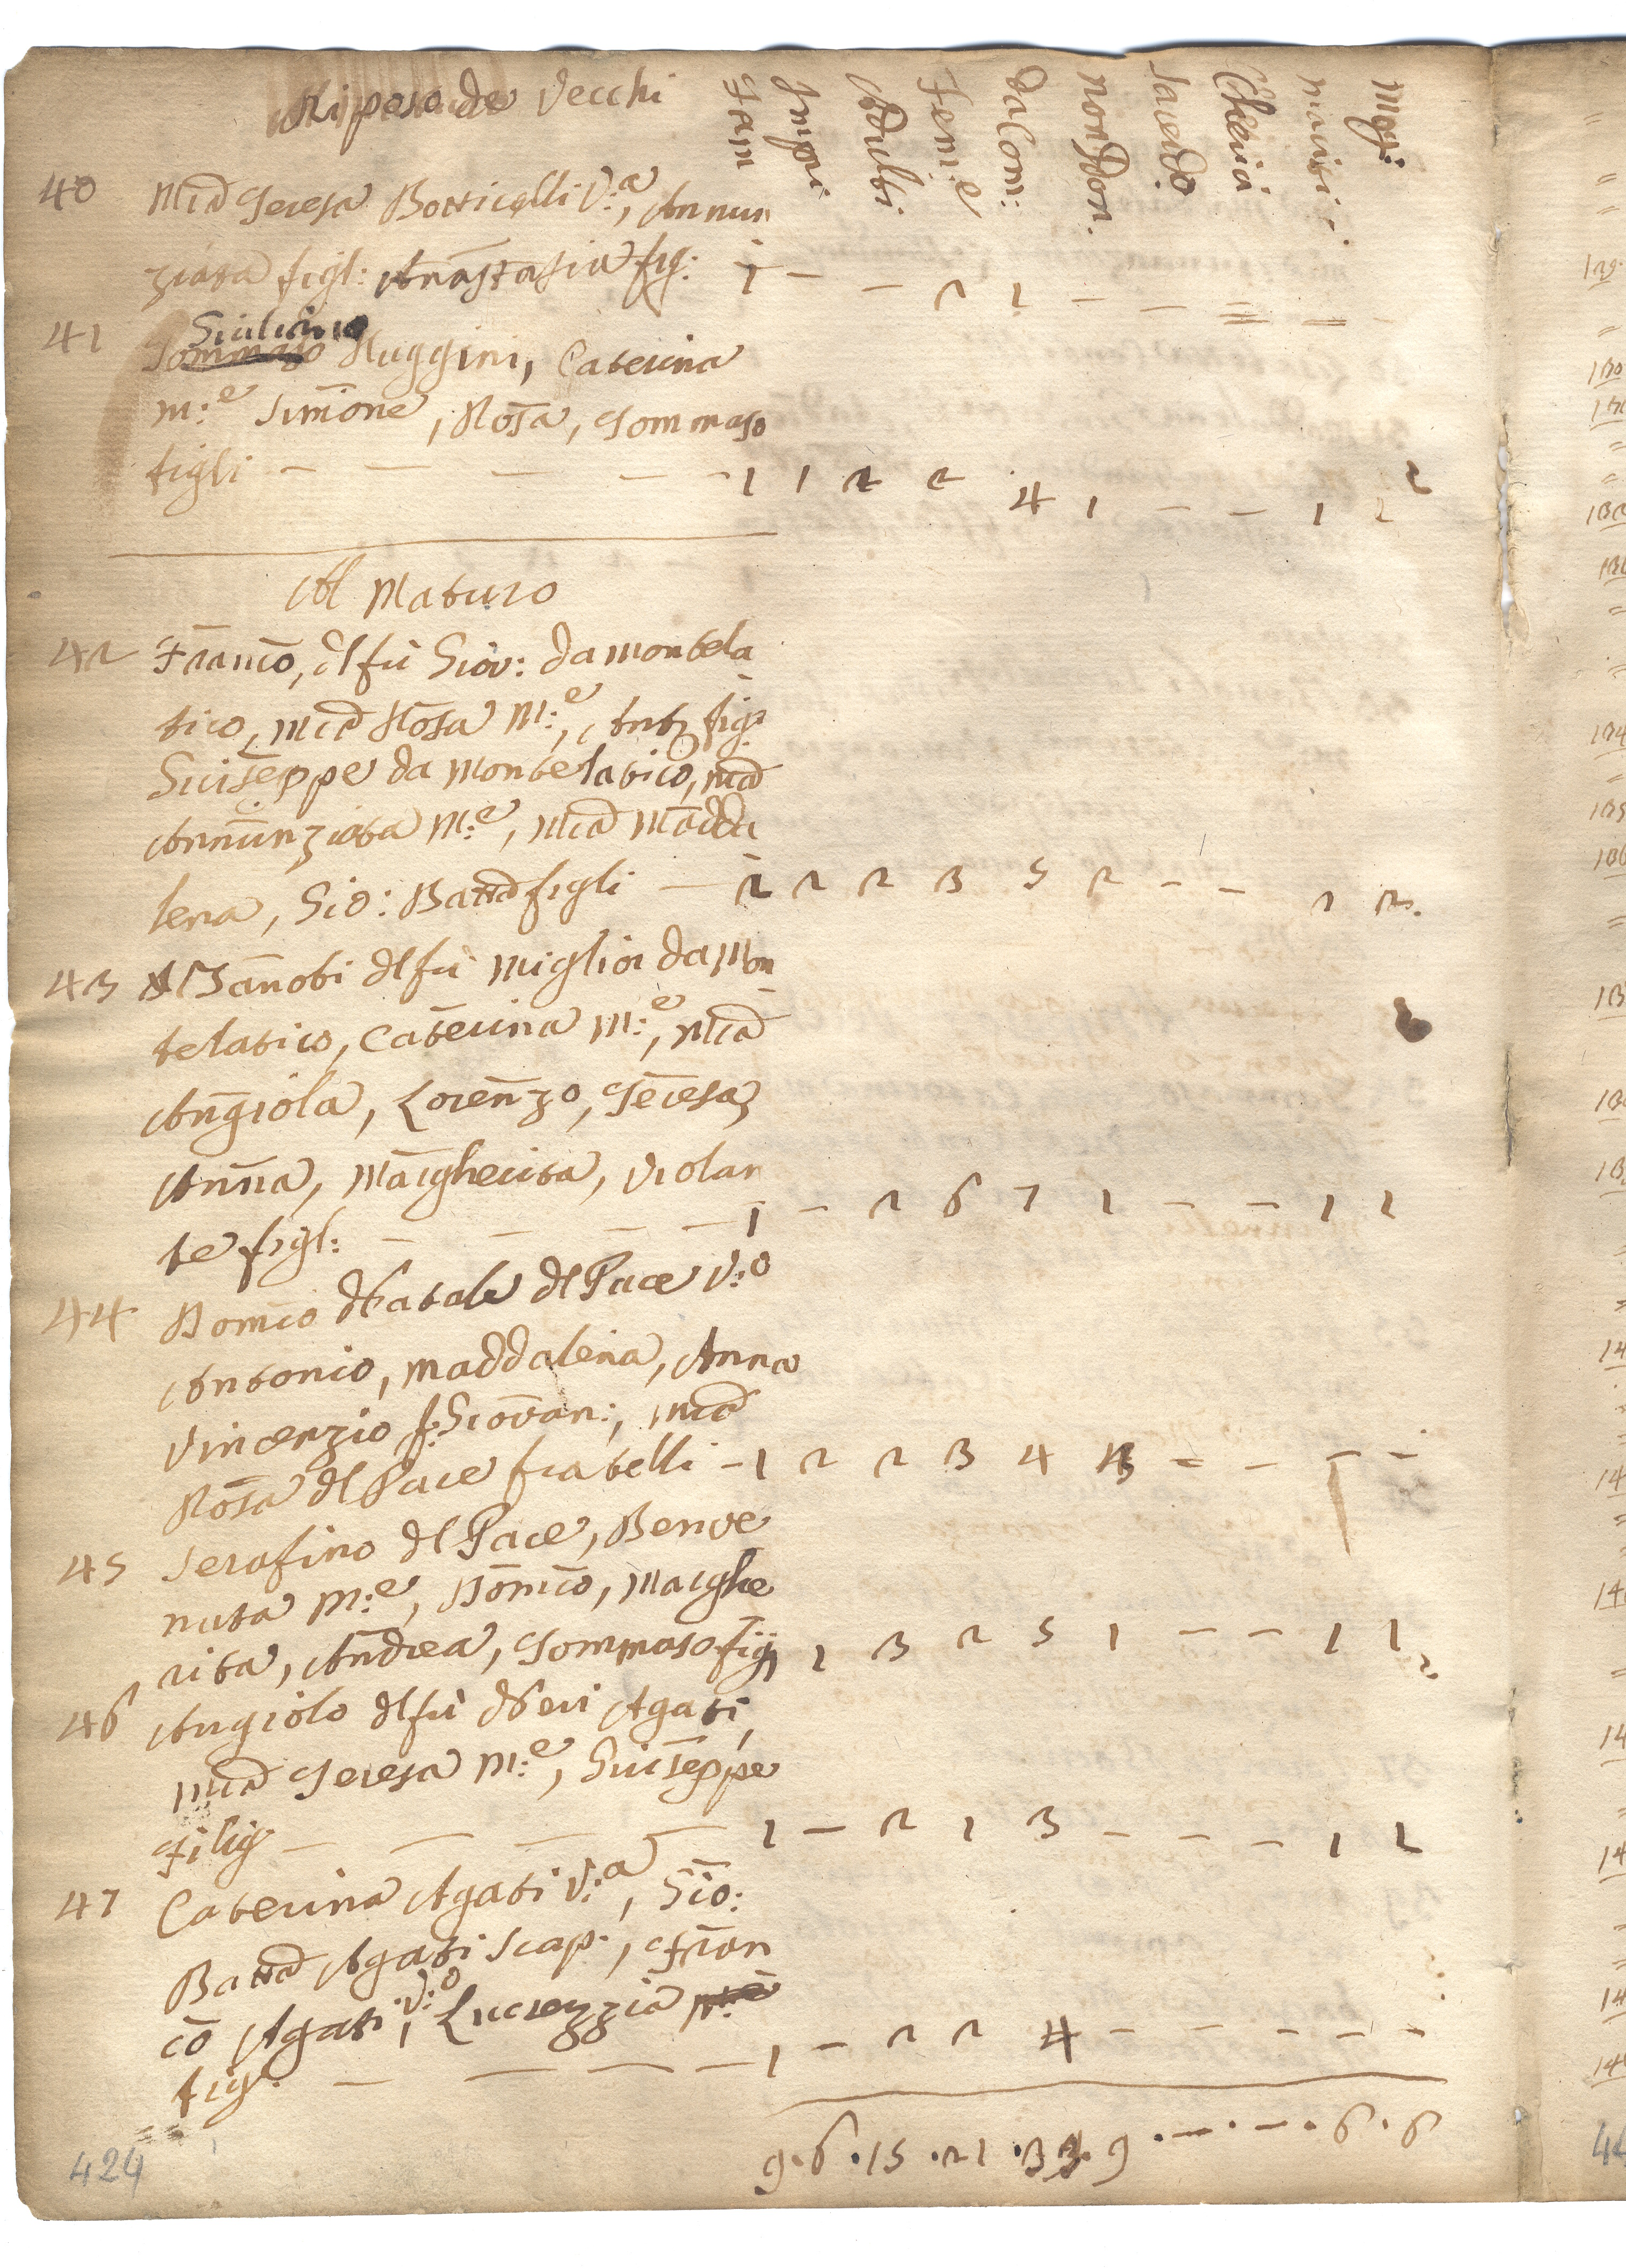 Riposo de Vecchi
Fam Impu Adulti Feme da Com: non Don. Sacerdo Cherici mariti Mog:
40 Mia Teresa Botticelli V:a, Annun
ziata figl: Anastasia fig: 1 — — 2 2 — — = = -
41 Giuliano
Tommaso Ruggini, Caterina
m:e Simone, Rosa, Tommaso
figli — — — — 1 1 2 2 4 1 — — 1 1 2
Al Maturo
42 Franco, dl fù Giov: da montela
tico, Mia Rosa M:e, Anto fig:
Giuseppe da Montelatico, Mia
Annunziata M:e, Mia Madda
lena, Gio: Batta figli — 2 2 2 3 5 2 - - 2 2.
43 Zanobi dl fù Miglior da Mon
telatico, Caterina M:e, Mia
Angiola, Lorenzo, Teresa,
Anna, Margherita, Violan
te figl: — — — — 1 — 2 6 7 1 — — 1 1
44 Domco Natale dl Pace V:o
Antonio, Maddalena, Anna
Vincenzio f: Giovan:, Mia
Rosa dl Pace fratelli - 1 2 2 3 4 3 = - - -
45 Serafino dl Pace, Benve
nuta M:e, Domco, Marghe
rita, Andrea, Tommaso figi 1 3 2 5 1 — — 1 1 2
46 Angiolo dl fù Neri Agati,
Mia Teresa M:e, Giuseppe
figlio — — — — 1 — 2 1 3 — — — 1 1
47 Caterina Agati V:a, Gio:
Batta Agati scap:, Fran
co Agati V:o, Lucrezzia M:e
fig: — — — — 1 — 2 2 4 — — — — —
9 . 6 . 15 . 21 . 33 . 9 . — . — . 6 . 6
424